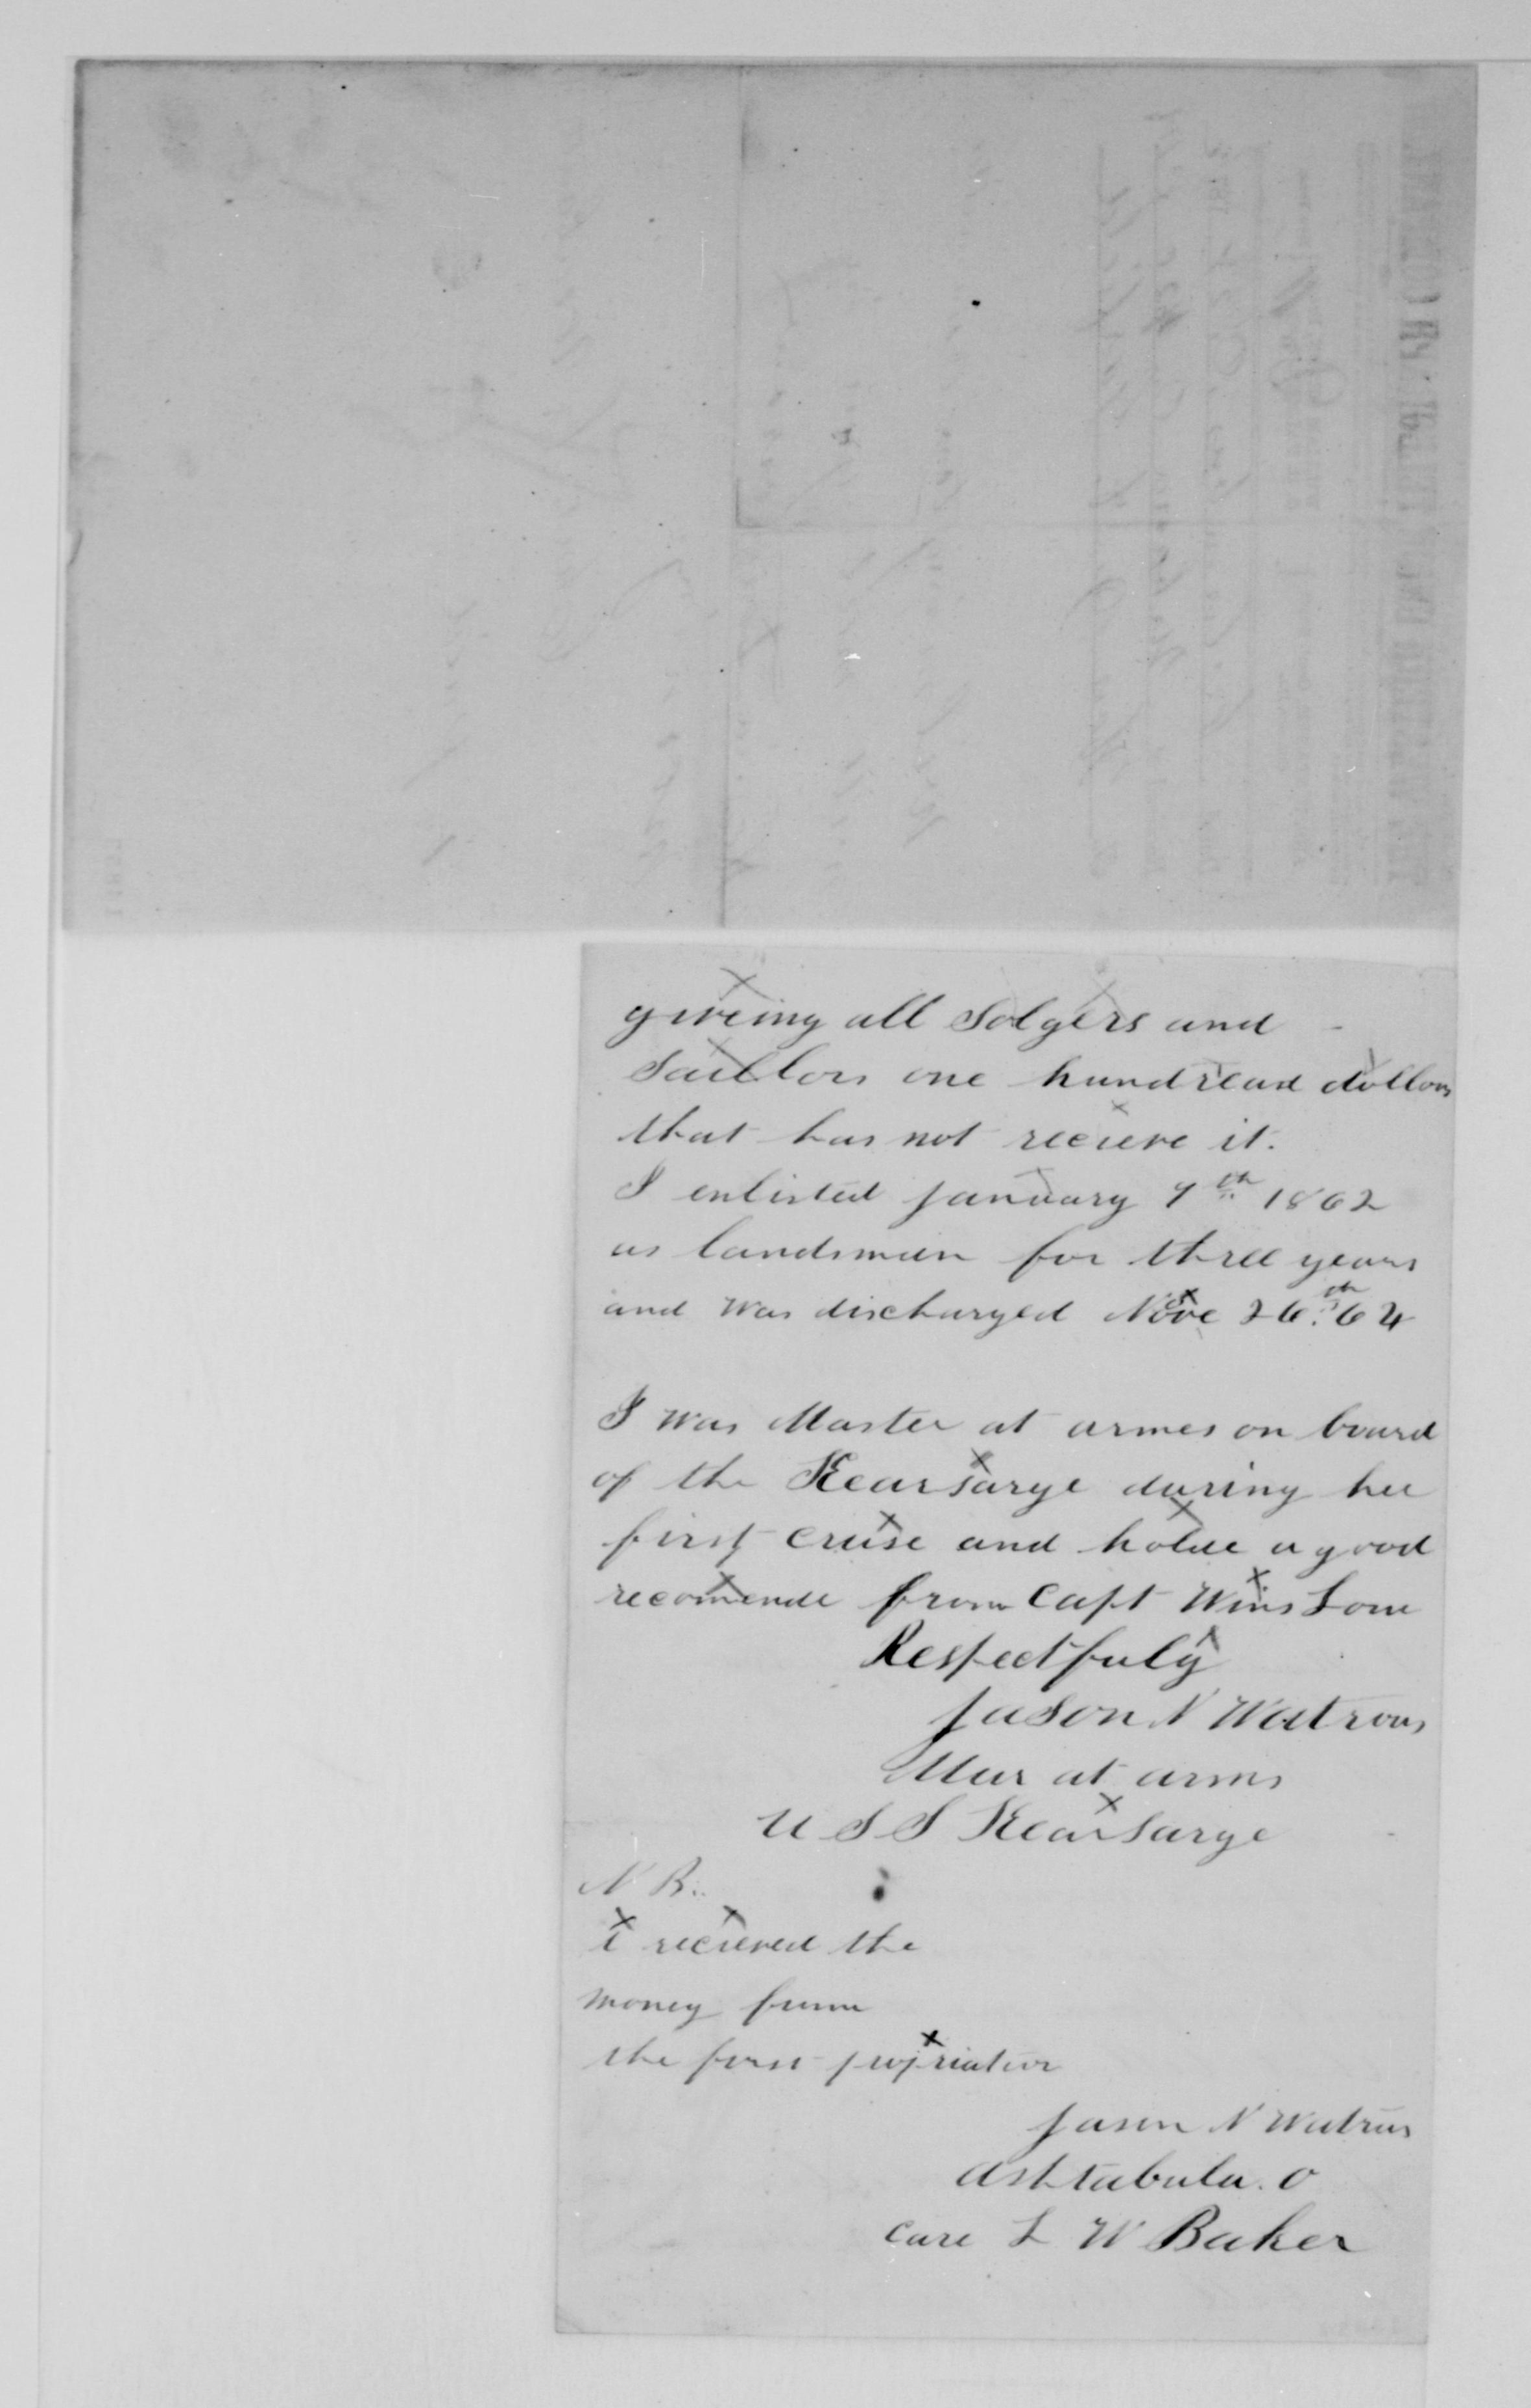 giveing all Solgers and
Saillors one hundread dollors
that has not recieve it.
I enlisted January 9th 1862
as landsman for three years
and was discharged Nove 26th 64
I was Master at armes on board
of the Kearsarge during her
first cruise and holde a good
recomende from Capt WinsLow
Respectfuly
Jason N Watrous
at arms
U S S Kearsarge
N B.
i recieved the
money from
the first propriation
Jason N Watrus
Ashtabula. O
Care L W Baker